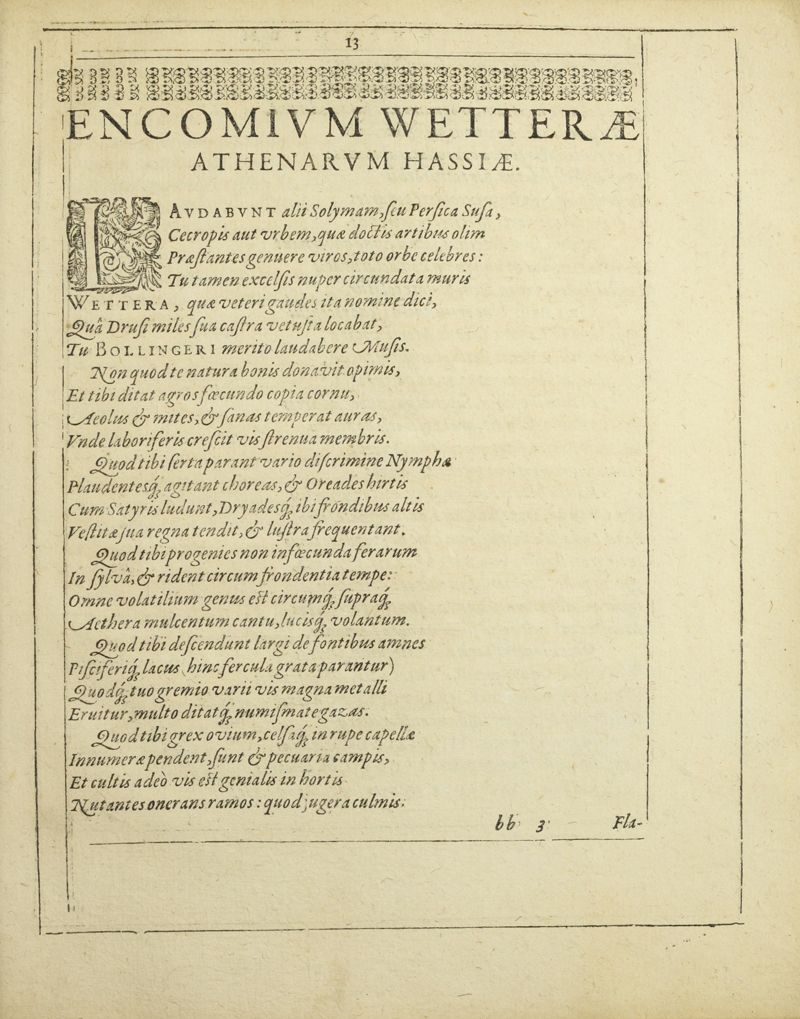 13
ENCOMIVM WETTERÆ
ATHENARVM HASSIÆ.
LAVDABVNT alii Solymam, seu Persica Susa,
Cecropis aut vrbem, quæ doctis artibus olim
Præstantes genuere viros, toto orbe celebres:
Tu tamen excelsis nuper circundata muris
WETTERA, quæ veteri gaudes ita nomine dici,
Quâ Drusi miles sua castra vetusta locabat,
Tu BOLLINGERI merito laudabere Musis.
Non quod te natura bonis donavit opimis,
Et tibi ditat agros fœcundo copia cornu,
Aeolus & mites, & sanas temperat auras,
Vnde laboriferis crescit vis strenua membris.
Quod tibi serta parant vario discrimine Nymphæ
Plaudentesq́; agitant choreas, & Oreades hirtis
Cum Satyris ludunt, Dryadesq́; ibi frondibus altis
Vestitæ sua regna tendit, & lustra frequentant.
Quod tibi progenies non infœcunda ferarum
In sylvâ, & rident circum frondentia tempe:
Omne volatilium genus est circumq́; supraq́;
Aethera mulcentum cantu, lucisq́; volantum.
Quod tibi descendunt largi de fontibus amnes
Pisciferiq́; lacus hinc fercula grata parantur)
Quodq́; tuo gremio varii vis magna metalli
Eruitur, multo ditatq́; numismate gazas.
Quod tibi grex ovium, celsáq́; in rupe capellæ
Innumeræ pendent, sunt & pecuaria campis,
Et cultis adeò vis est genialis in hortis
Nutantes onerans ramos: quod jugera culmis:
bb 3 Fla-